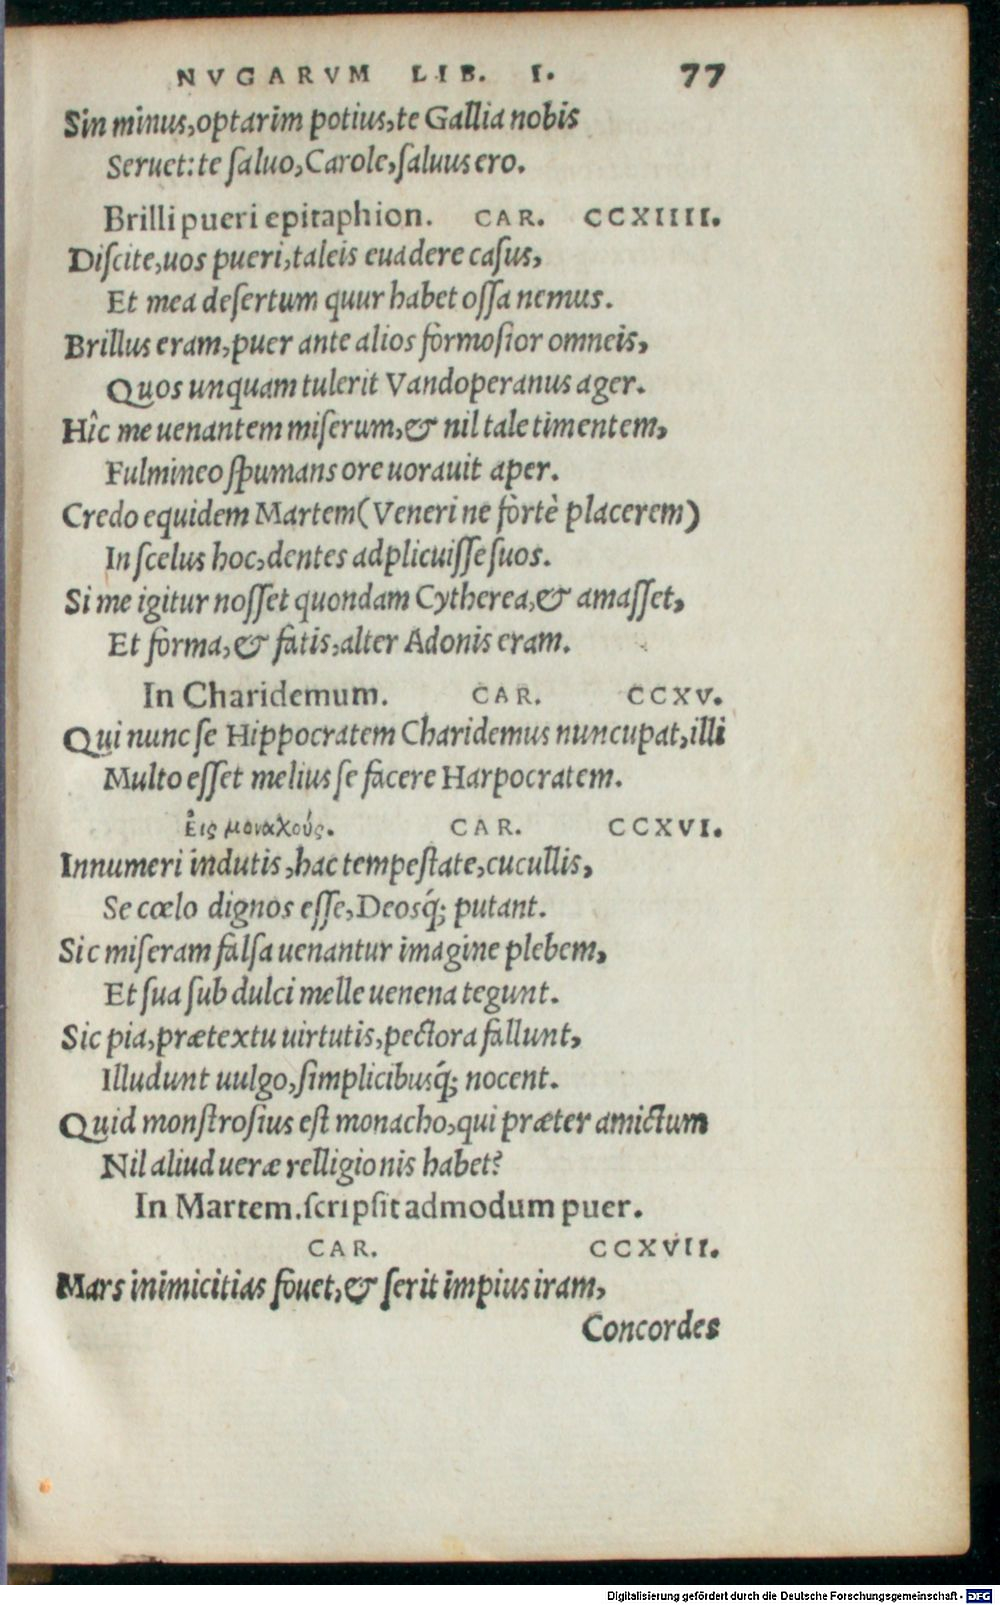 NVGARVM LIB. I. 77
Sin minus,optarim potius,te Gallia nobis
Seruet:te ſaluo,Carole,ſaluus ero.
Brilli pueri epitaphion. CAR. CCXIIII.
Diſcite,uos pueri,taleis euadere caſus,
Et mea deſertum quur habet oſſa nemus.
Brillus eram,puer ante alios formoſior omneis,
Quos unquam tulerit Vandoperanus ager.
Hîc me uenantem miſerum,& nil tale timentem,
Fulmineo ſpumans ore uorauit aper.
Credo equidem Martem(Veneri ne fortè placerem)
In ſcelus hoc,dentes adplicuiſſe ſuos.
Si me igitur noſſet quondam Cytherea,& amaſſet,
Et forma,& fatis,alter Adonis eram.
In Charidemum. CAR. CCXV.
Qui nunc ſe Hippocratem Charidemus nuncupat,illi
Multo eſſet melius ſe facere Harpocratem.
Εἰς μοναχούς. CAR. CCXVI.
Innumeri indutis,hac tempeſtate,cucullis,
Se cœlo dignos eſſe,Deosq́; putant.
Sic miſeram falſa uenantur imagine plebem,
Et ſua ſub dulci melle uenena tegunt.
Sic pia,prætextu uirtutis,pectora fallunt,
Illudunt uulgo,ſimplicibusq́; nocent.
Quid monſtroſius eſt monacho,qui præter amictum
Nil aliud ueræ relligionis habet?
In Martem.ſcripſit admodum puer.
CAR. CCXVII.
Mars inimicitias fouet,& ſerit impius iram,
Concordes
Digitalisierung gefördert durch die Deutsche Forschungsgemeinschaft - DFG